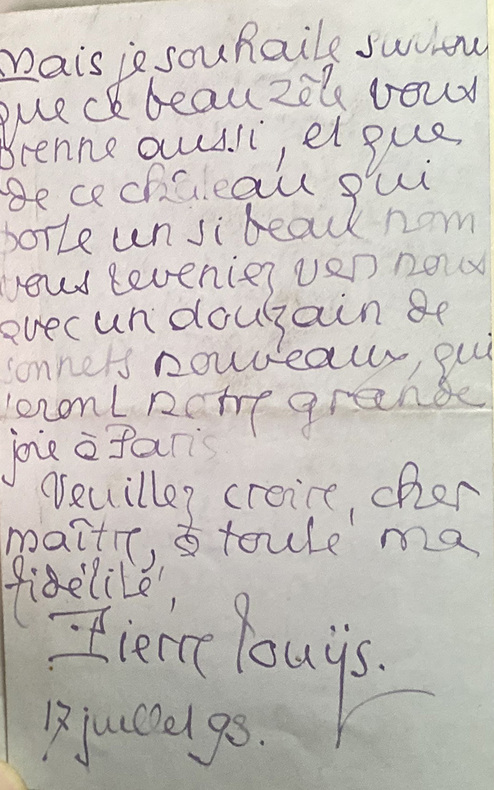 Mais je souhaite surtout
que ce beau zèle vous
prenne aussi, et que
de ce château qui
porte un si beau nom
vous reveniez vers nous
avec un douzain de
sonnets nouveaux, qui
feront notre grande
joie à Paris
Veuillez croire, cher
maître, à toute ma
fidélité,
Pierre Louÿs.
17 juillet 93.